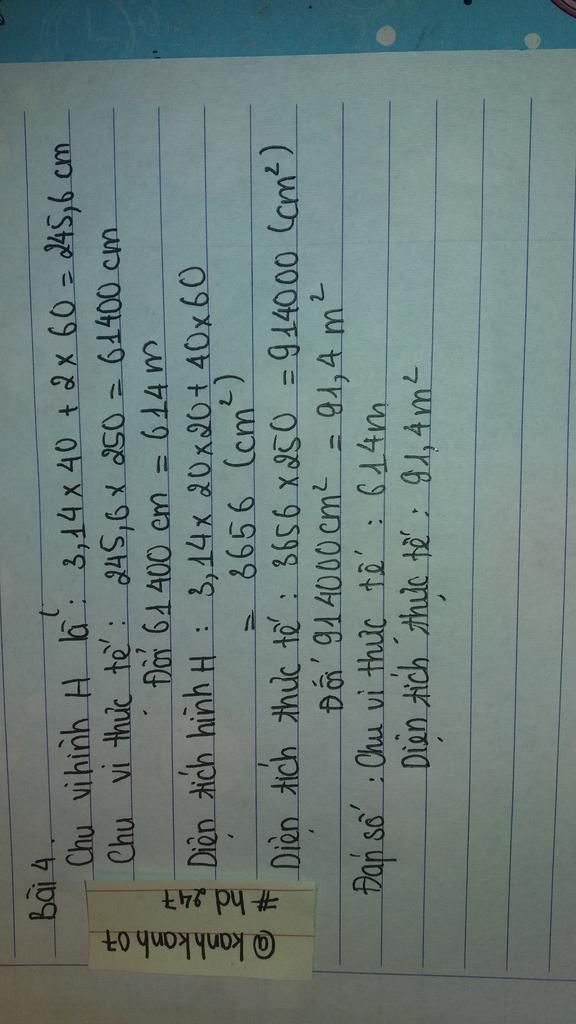 Bài 4.
Chu vi hình H là : 3,14 x 40 + 2 x 60 = 245,6 cm
Chu vi thức tế : 245,6 x 250 = 61400 cm
Đổi 61400 cm = 614 m
Diện tích hình H : 3,14 x 20 x 20 + 40 x 60
= 3656 (cm²)
Diện tích thức tế : 3656 x 250 = 914000 (cm²)
Đổi 914000cm² = 91,4 m²
Đáp số : Chu vi thức tế : 614m
Diện tích thực tế : 91,4m²
@kanhkanh07
#hd247